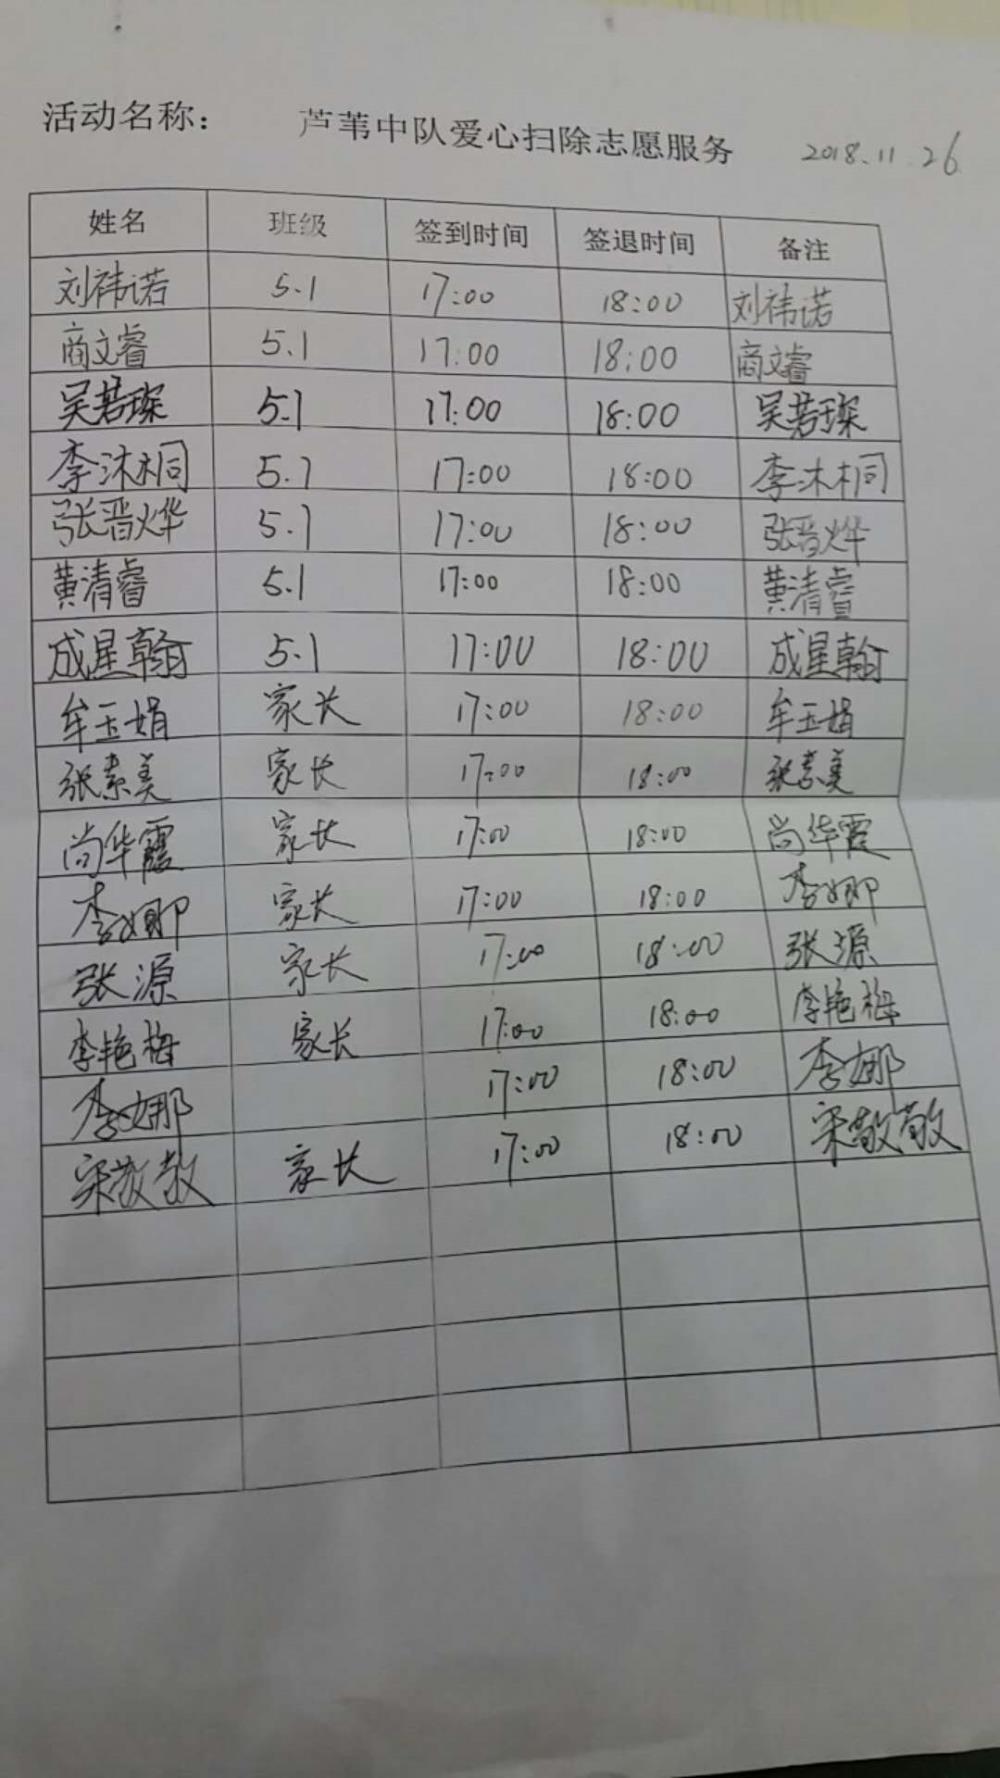 活动名称： 芦苇中队爱心扫除志愿服务 2018.11.26
姓名 班级 签到时间 签退时间 备注
刘祎诺 5.1 17:00 18:00 刘祎诺
商文睿 5.1 17:00 18:00 商文睿
吴若琛 5.1 17:00 18:00 吴若琛
李沐桐 5.1 17:00 18:00 李沐桐
张晋烨 5.1 17:00 18:00 张晋烨
黄清睿 5.1 17:00 18:00 黄清睿
成星翰 5.1 17:00 18:00 成星翰
牟玉娟 家长 17:00 18:00 牟玉娟
张素美 家长 17:00 18:00 张素美
尚华霞 家长 17:00 18:00 尚华霞
李娜 家长 17:00 18:00 李娜
张源 家长 17:00 18:00 张源
李艳梅 家长 17:00 18:00 李艳梅
李娜 17:00 18:00 李娜
宋敬敬 家长 17:00 18:00 宋敬敬